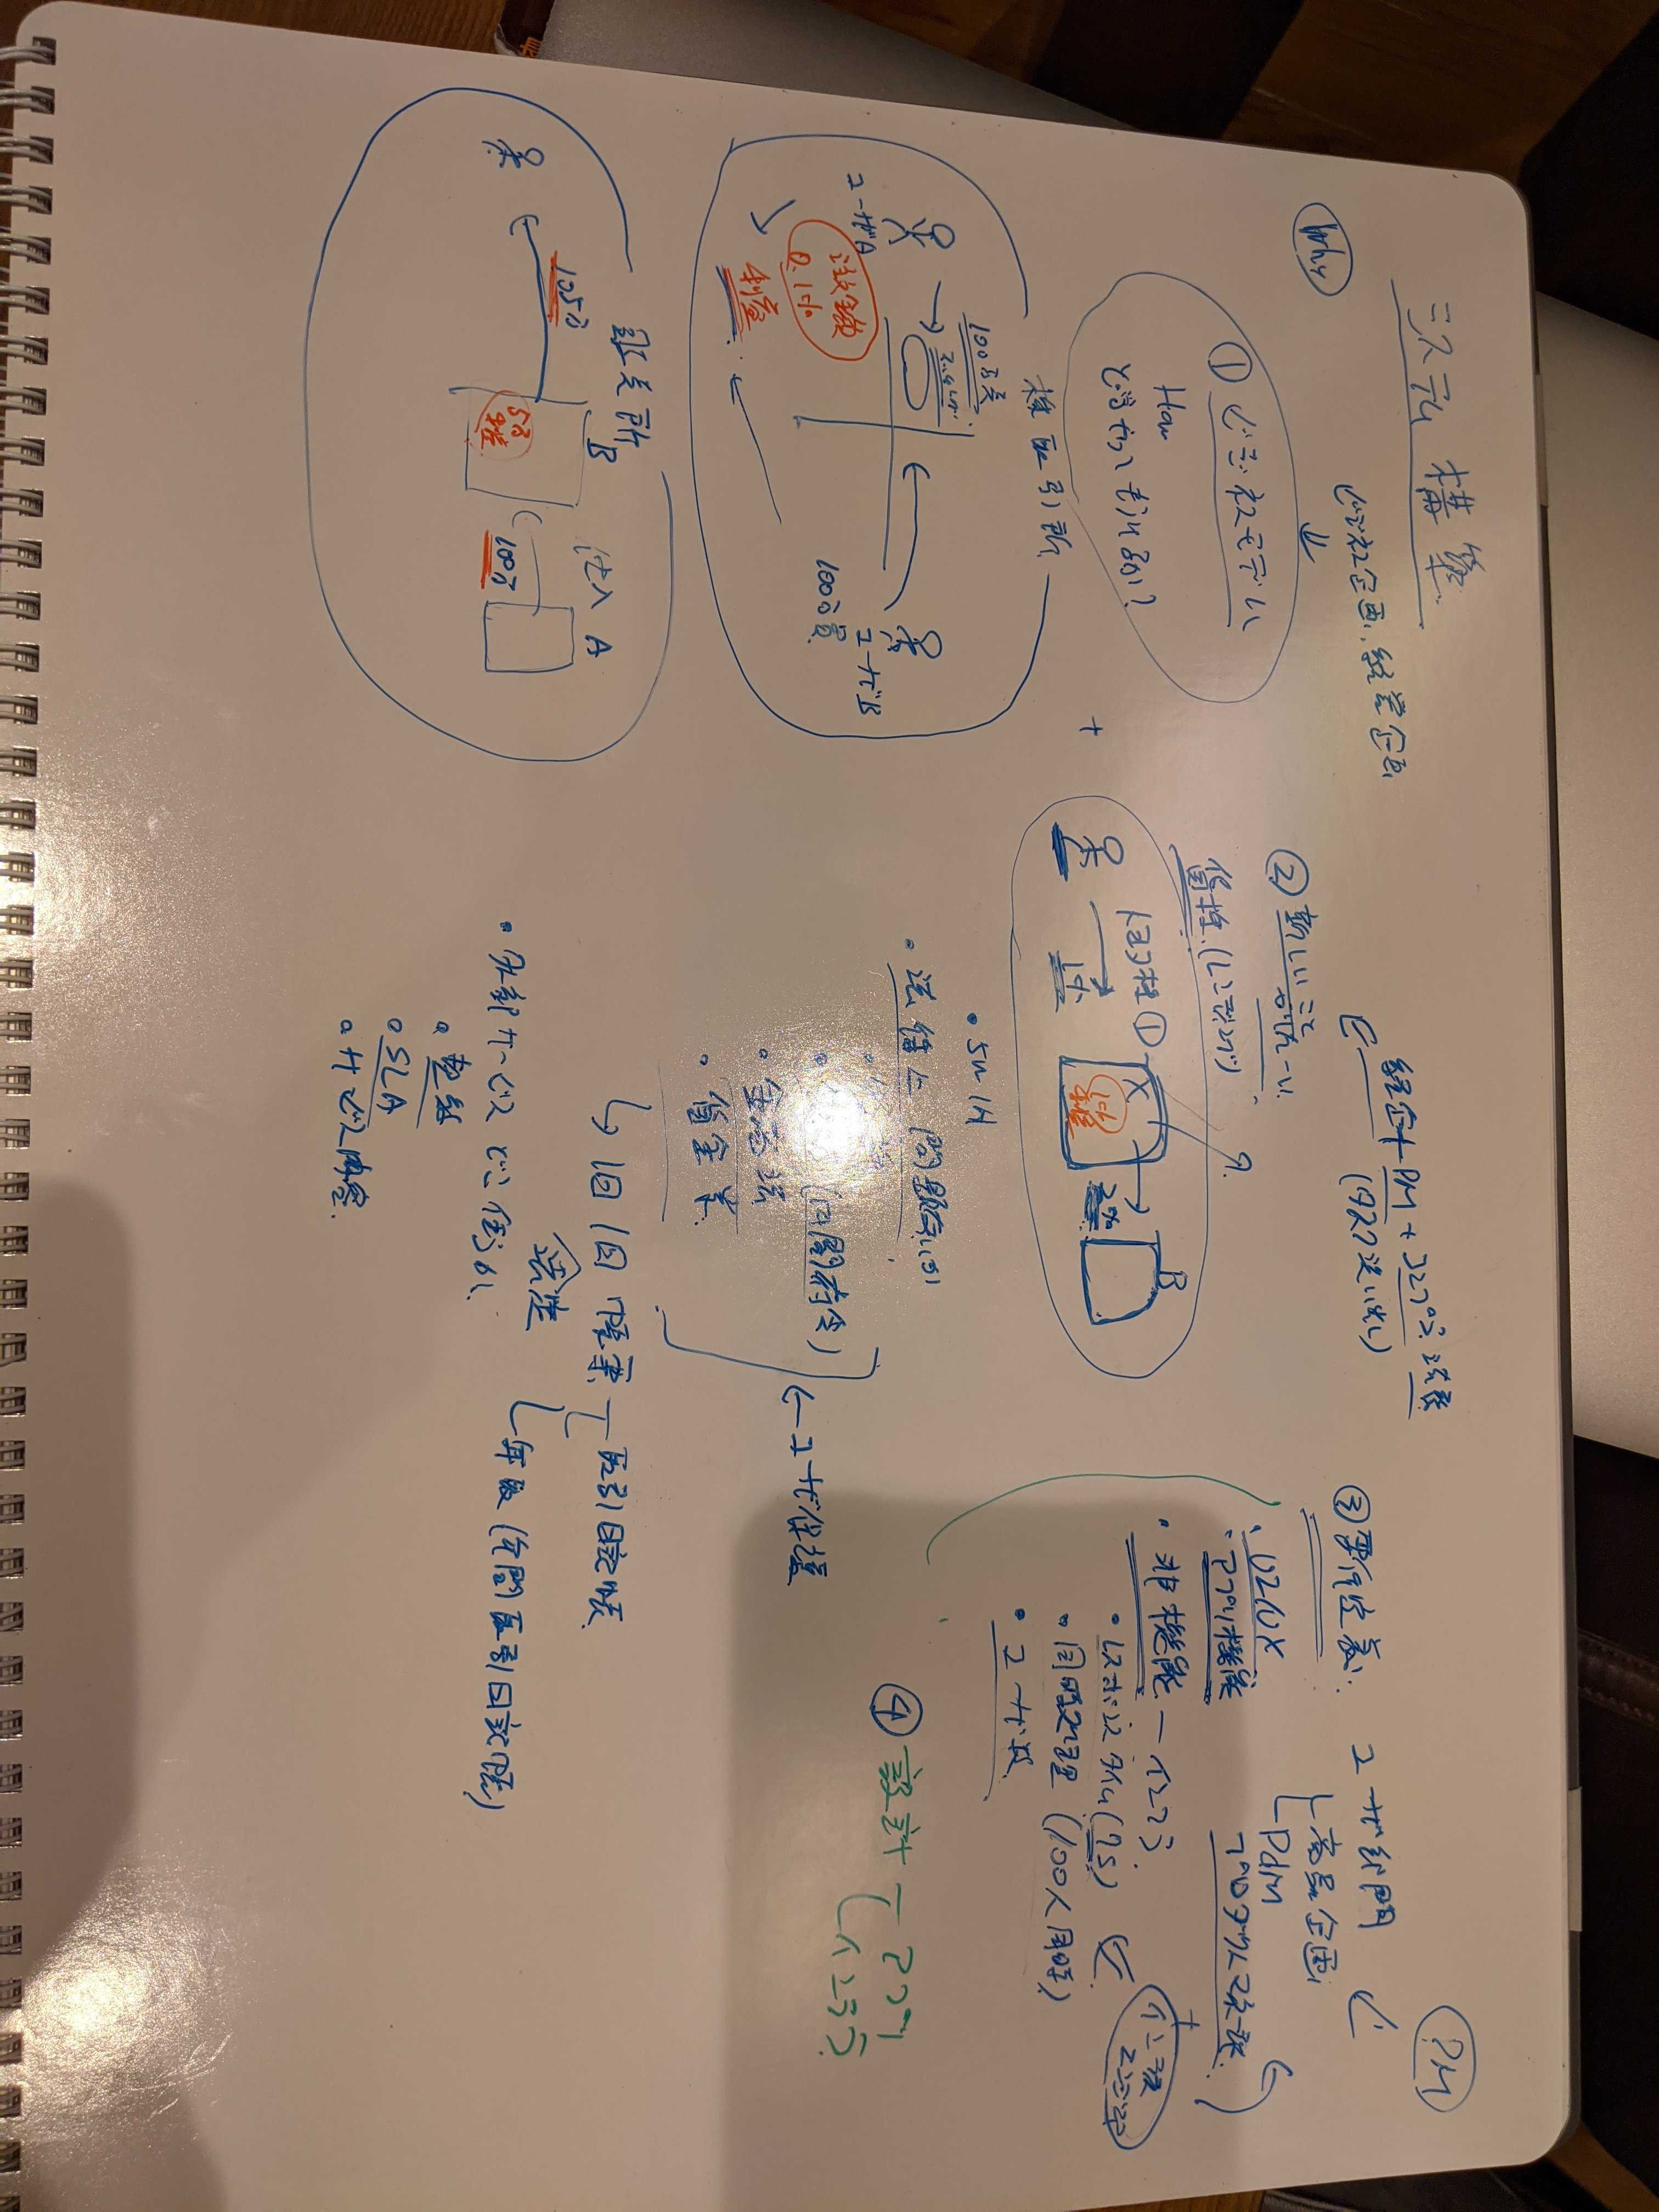 システム 構築
Why
ビジネス企画、経営企画
① ビジネスモデル
How
どうやってもうけるか?
株取引所
100万売
ユーザA
ユーザB
100万買
注文金額
0.1%
利益
販売所
B
仕入 A
105万
5万
利益
100万
経企+PM+コンプラ 法務
(タスク洗い出し)
② 新しいこと
やりたーい
貸株 (レンディング)
+
トヨタ株 ①
1%
1%
利益
2%
B
・5W1H
・法律上 問題ないか
・金商法
・貸金業
←ユーザ保護
1日1回 帳票
取引日記帳
法定
年次 (年間取引日記帳)
・外部サービス どこ使うか
・契約
・SLA
・サービス内容
PM
③ 要件定義
ユーザ部門
商品企画
PdM
プロダクトマネージャ
+
インフラ
エンジニア
・UI/UX
・アプリ機能
・非機能 ー インフラ
・レスポンスタイム (?S)
・同時処理 (100人同時)
・ユーザ数
④ 設計 ー アプリ
インフラ